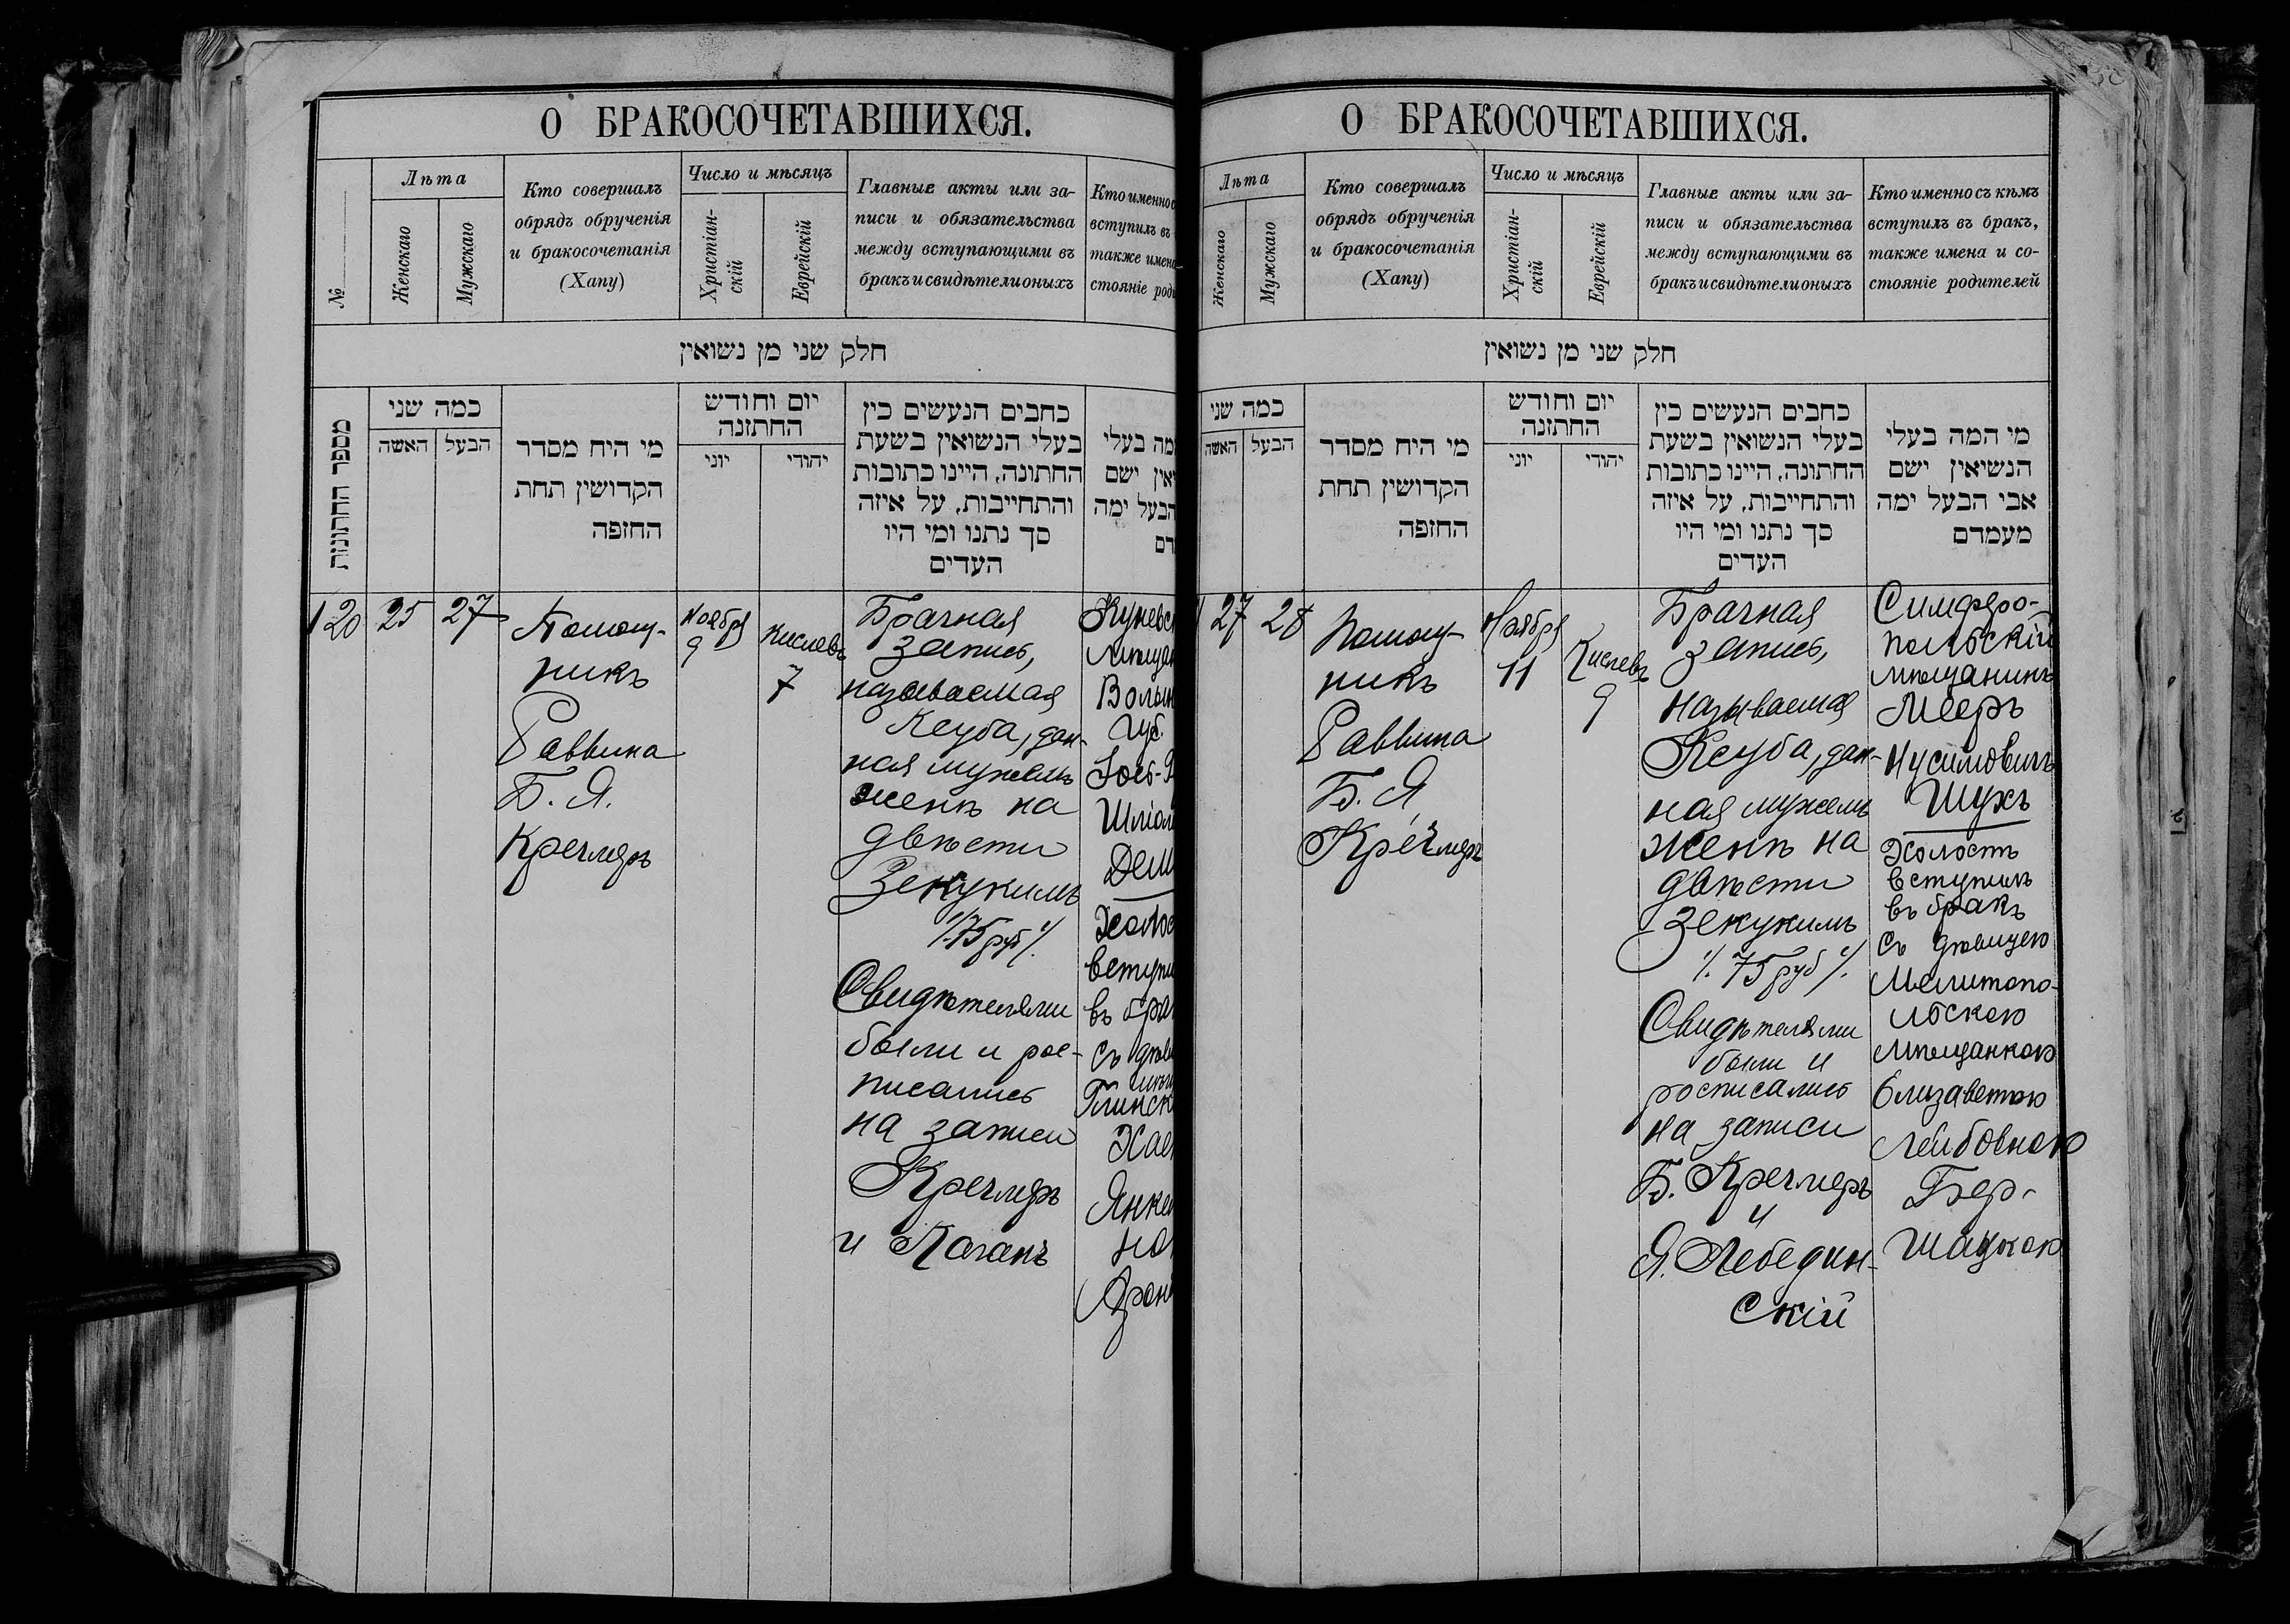 О БРАКОСОЧЕТАВШИХСЯ.
№
Лѣта
Женскаго
Мужскаго
Кто совершалъ
обрядъ обрученія
и бракосочетанія
(Хапу)
Число и мѣсяцъ
Христіан-
скій
Еврейскій
Главные акты или за-
писи и обязательства
между вступающими въ
бракъ и свидѣтели оныхъ
Кто именно с
вступилъ въ
также имена
стояніе роди
חלק שני מן נשואין
מספר החתונות
כמה שני
האשה
הבעל
מי היח מסדר
הקדושין תחת
החזפה
יום וחודש
החתזנה
יוני
יהודי
כחבים הנעשים כין
בעלי הנשואין בשעת
החתונה, היינו כתובות
והתחייבות, על איזה
סך נתנו ומי היו
העדים
מה בעלי
יאין ישם
הבעל ימה
דם
120
25
27
Помощ-
никъ
Раввина
Б. Я.
Кречмеръ
Ноября
9
Кислевъ
7
Брачная
запись,
называемая
Кеуба, дан-
ная мужемъ
женѣ на
двѣсти
Зекукимъ
./.75 руб./.
Свидѣтелями
были и рос-
писались
на записи
Кречмеръ
и Каганъ
Куневск
мѣщан
Волын
Губ.
Шміол
Холос
вступи
въ бра
съ дѣви
Глинск
Хае
Янке
но
Арон
О БРАКОСОЧЕТАВШИХСЯ.
Лѣта
Женскаго
Мужскаго
Кто совершалъ
обрядъ обрученія
и бракосочетанія
(Хапу)
Число и мѣсяцъ
Христіан-
скій
Еврейскій
Главные акты или за-
писи и обязательства
между вступающими въ
бракъ и свидѣтели оныхъ
Кто именно съ кѣмъ
вступилъ въ бракъ,
также имена и со-
стояніе родителей
חלק שני מן נשואין
כמה שני
האשה
הבעל
מי היח מסדר
הקדושין תחת
החזפה
יום וחודש
החתזנה
יוני
יהודי
כחבים הנעשים כין
בעלי הנשואין בשעת
החתונה, היינו כתובות
והתחייבות, על איזה
סך נתנו ומי היו
העדים
מי המה בעלי
הנשיאין ישם
אבי הבעל ימה
מעמדם
27
28
Помощ-
никъ
Раввина
Б. Я
Кречмеръ
Ноября
11
Кислевъ
9
Брачная
запись,
называемая
Кеуба, дан-
ная мужемъ
женѣ на
двѣсти
Зекукимъ
./. 75 руб ./.
Свидѣтелями
были и
росписались
на записи
Б. Кречмеръ
и
Я. Лебедин-
скій
Симферо-
польскій
мѣщанинъ
Мееръ
Нусимовичъ
Шухъ
Холостъ
вступилъ
въ бракъ
съ дѣвицею
Мелитопо-
льскою
мѣщанкою
Елизаветою
Лейбовною
Бер-
шацкою